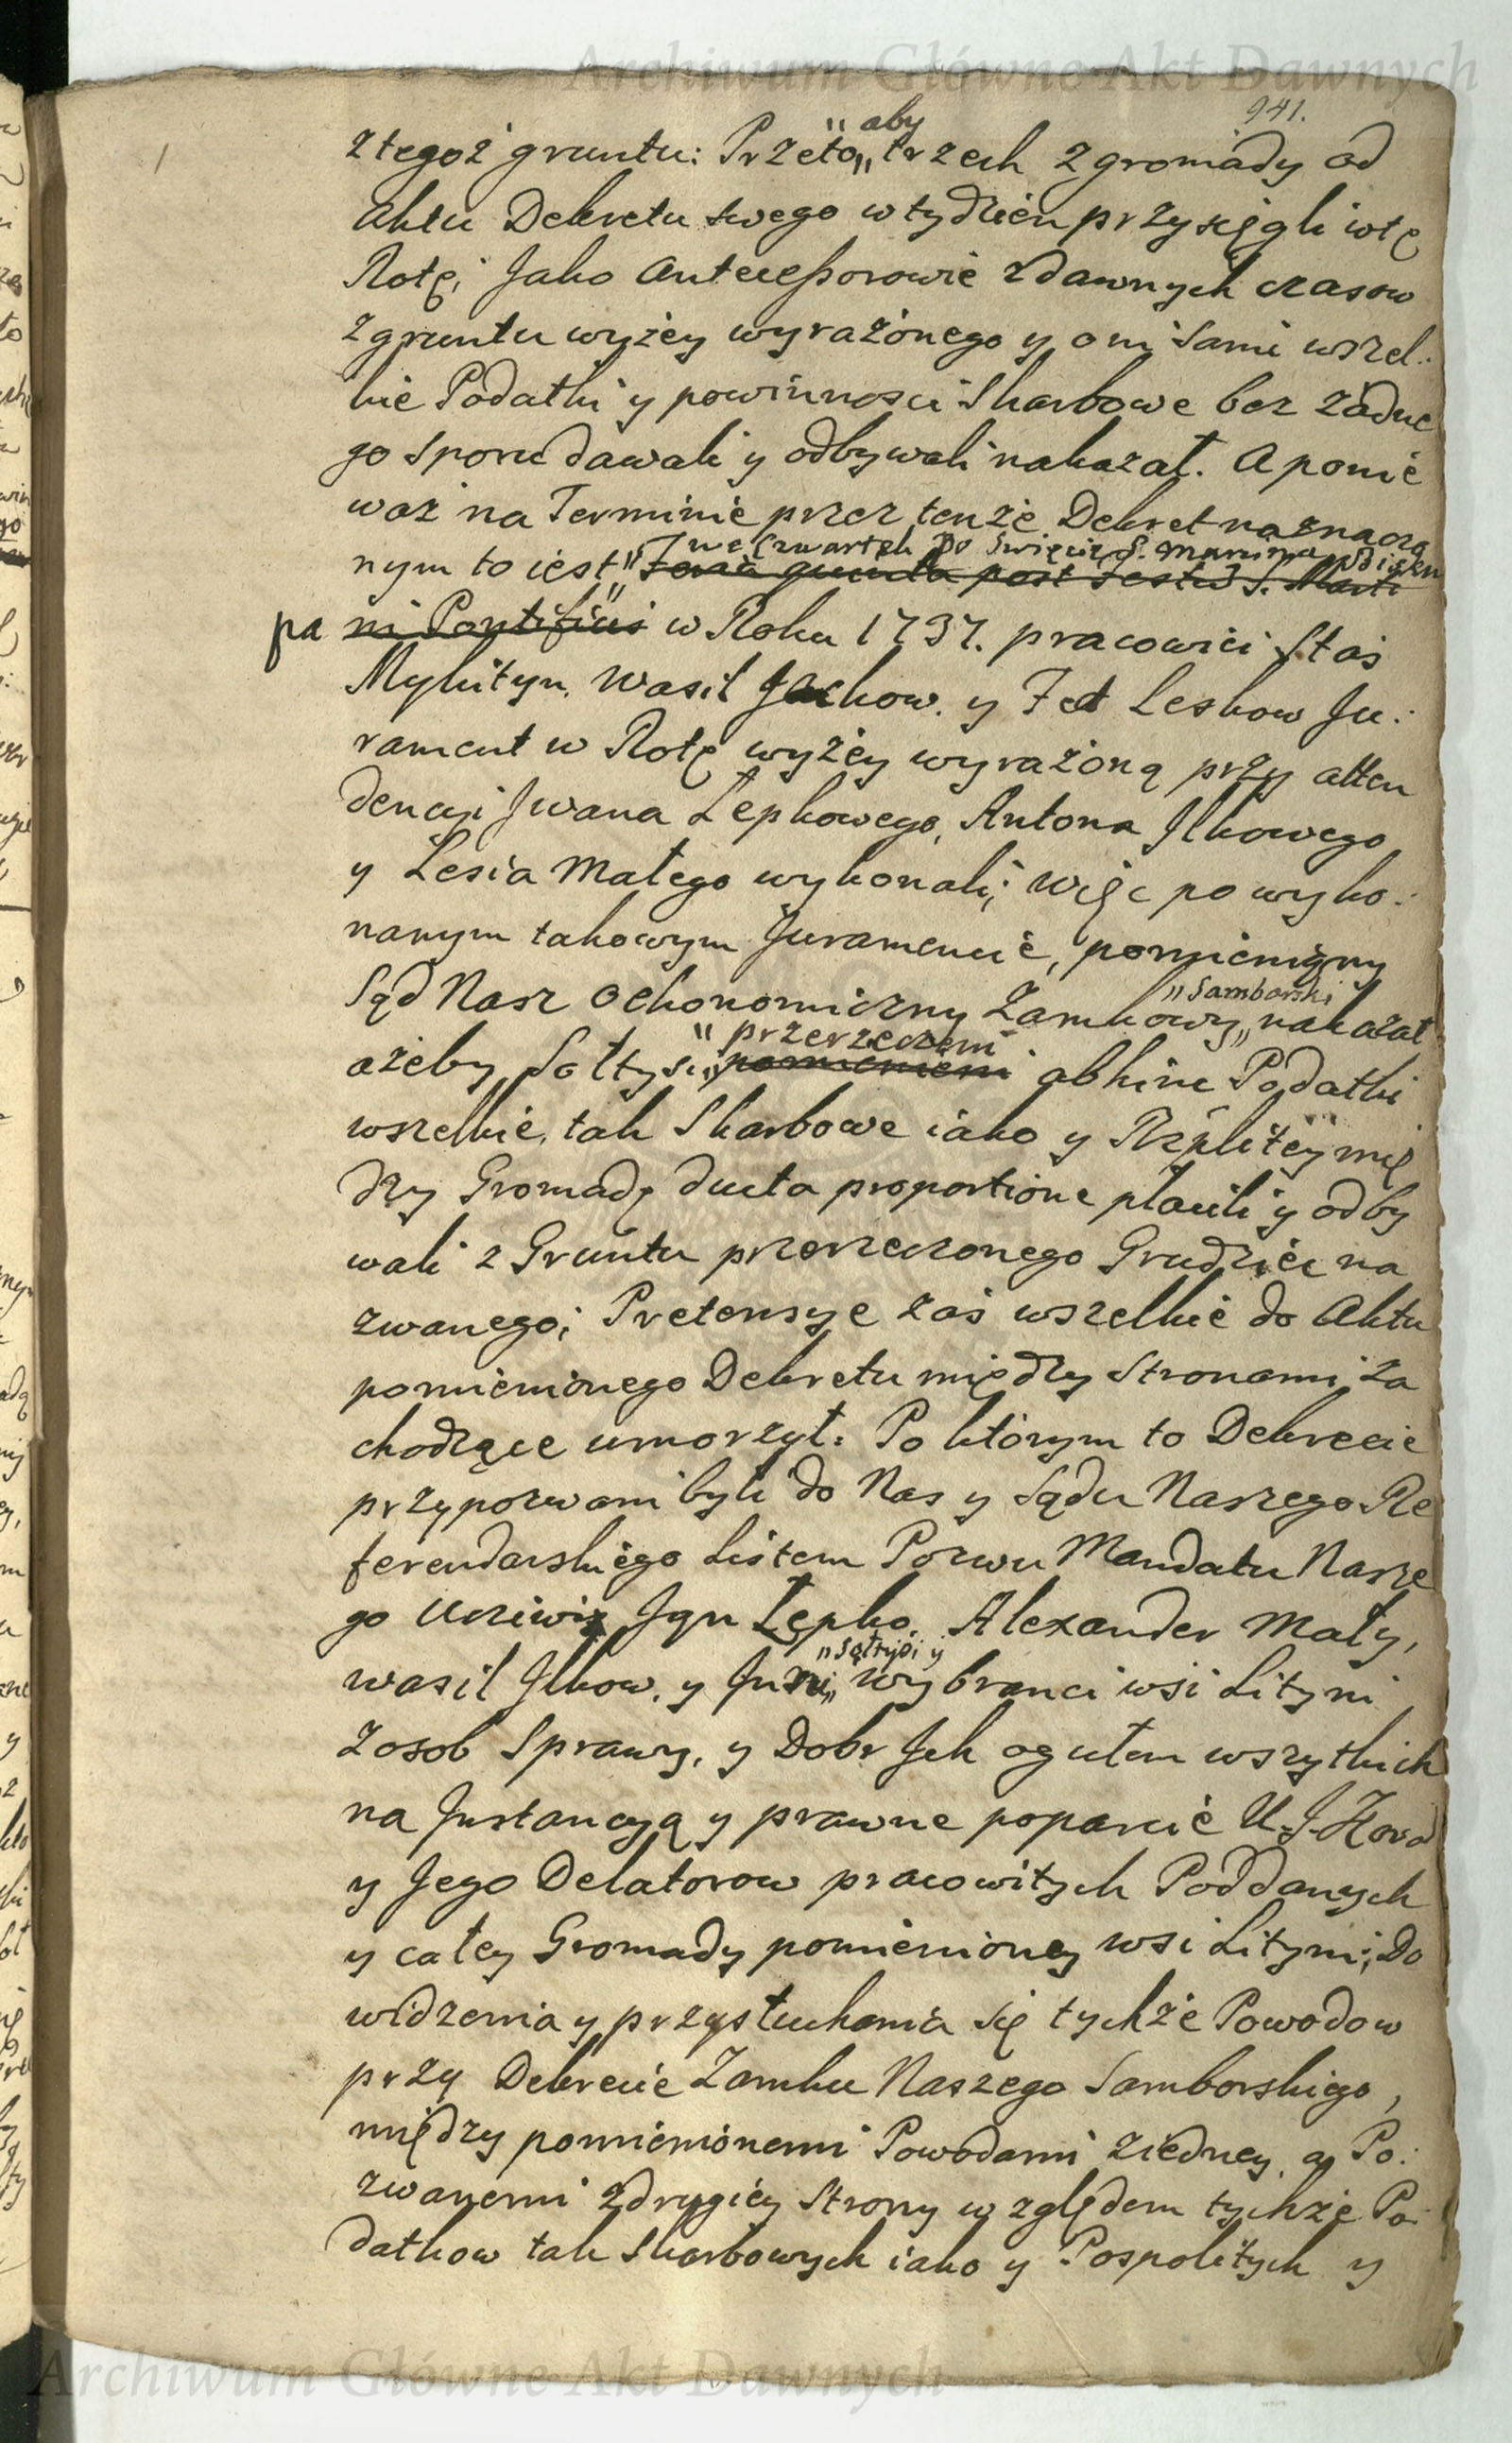 Archiwum Główne Akt Dawnych
941.
z tegoż gruntu: Przeto „ aby „ trzech z gromady od
Aktu Dekretu swego w tydzień przysięgli w tę
Rotę; Jako Antecessorowie z dawnych czasow
z gruntu wyżey wyrażonego y oni sami wszel:
kie Podatki y powinnosci Skarbowe bez żadne
go sporu dawali y odbywali nakazał. A ponie
waż na Terminie przez tenże Dekret naznaczo
we Czwartek po Święcie S. Marcina Biskupa
nym to iest „ Feria quinta post Festū S. Marti
ni Pontificis w Roku 1737. pracowici Staś
Mykityn, Wasil Jackow, y Fed Leskow Ju:
rament w Rotę wyżey wyrażoną przy atten
dencyi Jwana Łepkowego, Antona Jlkowego
y Lesia Małego wykonali; Więc po wyko:
nanym takowym Juramencie, pomieniony
Sąd Nasz Oekonomiczny Zamkowy „ Samborski „ nakazał
ażeby Sołtysi „ przerzeczeni pomienieni abhinc Podatki
wszelkie, tak Skarbowe iako y Rzplitey mię
dzy Gromadę ducta proportione płacili y odby
wali z Gruntu przerzeczonego Grudziec na
zwanego; Pretensye zaś wszelkie do Aktu
pomienionego Dekretu między Stronami za
chodzące umorzył: Po którym to Dekrecie
przypozwani byli do Nas y Sądu Naszego Re
ferendarskiego Listem Pozwu Mandatu Nasze
go Uczciwi Jgn Łepko, Alexander Mały,
Wasil Jlkow, y Jnni „ Sołtysi y „ wybranci wsi Lityni
z osob Sprawy, y Dobr Jch ogułem wszytkich
na Jnstancyą y prawne poparcie U. J.
y Jego Delatorow pracowitych Poddanych
y całey Gromady pomienioney wsi Lityni; Do
widzenia y przysłuchania się tychże Powodow
przy Dekrecie Zamku Naszego Samborskiego,
między pomienionemi Powodami z iedney, a Po:
zwanemi z drugiey Strony względem tychże Po:
datkow tak Skarbowych iako y Pospolitych y
Archiwum Główne Akt Dawnych